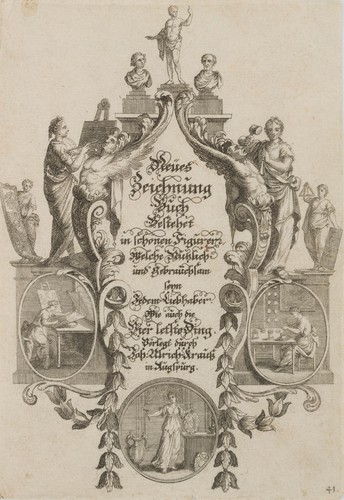 Neües
Zeichnung
Buch
Bestehet
in schönen Figuren
Welche Nützlich
und Gebrauchsam
seyn
Jedem Liebhaber
Wie auch die
Vier letste Ding.
Verlegt durch
Joh. Ulrich Krauß
in Augspurg.
41.